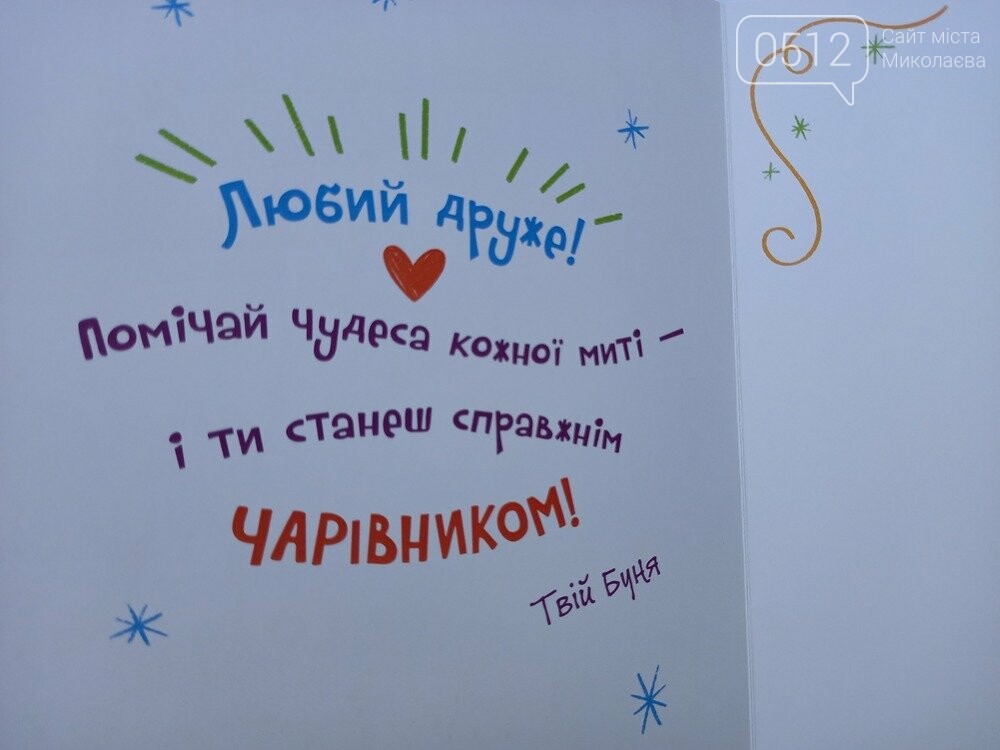 0512
Сайт міста
Миколаєва
Любий друже!
Помічай чудеса кожної миті –
і ти станеш справжнім
ЧАРІВНИКОМ!
Твій Буня